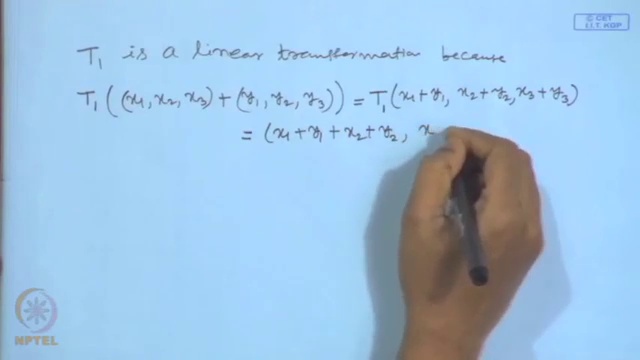 © CET
I.I.T. KGP
T₁ is a linear transformation because
T₁((x₁, x₂, x₃) + (y₁, y₂, y₃)) = T₁(x₁+y₁, x₂+y₂, x₃+y₃)
= (x₁+y₁+x₂+y₂, x
NPTEL